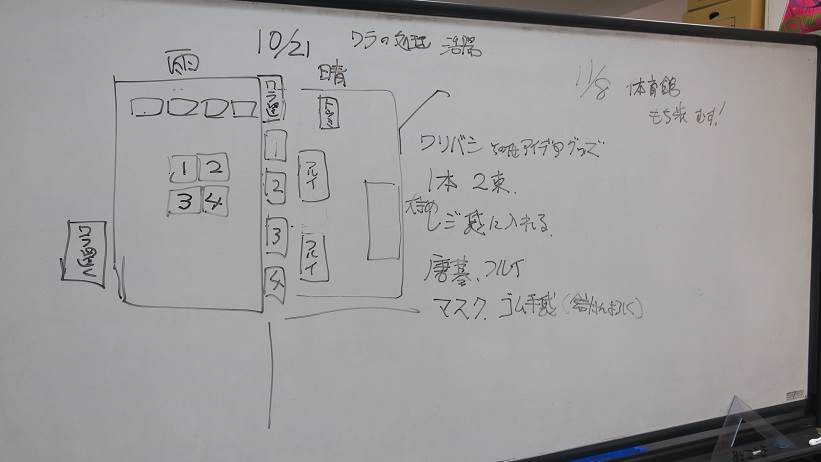 10/21 ワラの処理 活用
雨
晴
11/8 体育館
もち米 むす!
ワラ置く
1
2
3
4
フルイ
フルイ
1 2
3 4
ワラ置く
ワリバシ その他アイデアグッズ
1本 2束.
大きめ
レジ袋に入れる.
唐箕、フルイ
マスク. ゴム手袋